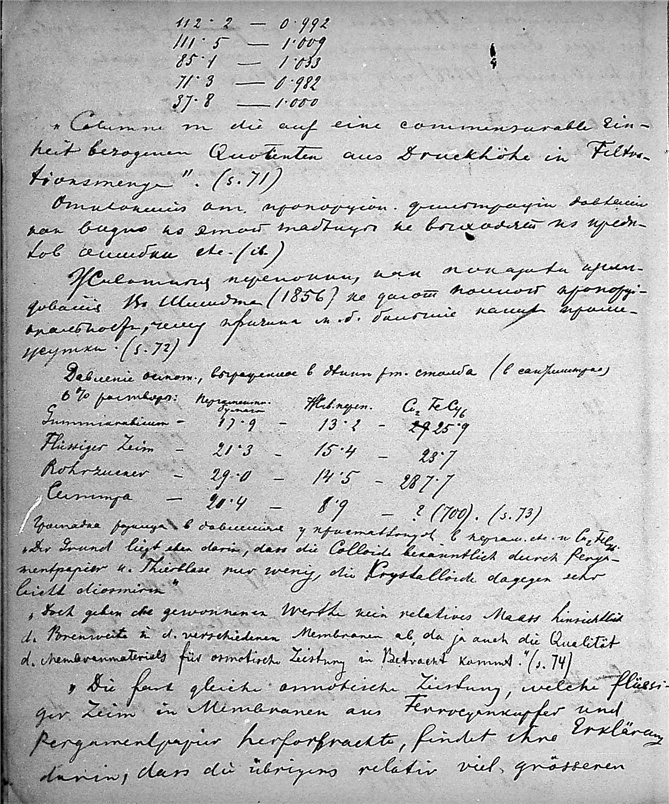 112·2 — 0.992
111·5 — 1.009
85·1 — 1.033
71·3 — 0.982
37·8 — 1.000
"Columne m die auf eine commensurable Ein-
heit bezogenen Quotienten aus Druckhöhe in Filtra-
tionsmenge". (s. 71)
от пропорцион. фильтрации давлению
как видно из этой таблицы не выходят из преде-
лов ошибки etc. (ib.)
Животныя перепонки, как показали изслѣ-
дованія Шмидта (1856) не дают полной пропорці-
ональности, чему причина м. б. большие
(s. 72)
Давление осмот., выраженное в длине рт. столба (в сантиметрах)
6% растворы: Пергаментн. бумага Жив. пузн. Cu2 FeCy6
Gummiarabicum — 17·9 — 13·2 — 25·9
Flüssiger Leim — 21·3 — 15·4 — 23·7
Rohrzucker — 29·0 — 14·5 — 287·7
Селитра — 20·4 — 8·9 — ? (700). (s. 73)
Громадна разница в давлениях у кристаллоидов в перган. etc. и Cu2 FeCy6.
"Der Grund liegt eben darin, dass die Colloide bekanntlich durch Perga-
mentpapier u. Thierblase nur wenig, die Krystalloide dagegen sehr
leicht diosmiren"
"Doch geben die gewonnenen Werthe kein relatives Maass hinsichtlich
d. Porenweite in d. verschiedenen Membranen ab, da ja auch die Qualität
d. Membranmaterials für osmotische Leistung in Betracht kommt." (s. 74)
"Die fast gleiche osmotische Leistung, welche flüssi-
ger Leim in Membranen aus Ferrocyankupfer und
Pergamentpapier hervorbrachte, findet ihre Erklärung
darin, dass die übrigens relativ viel grösseren